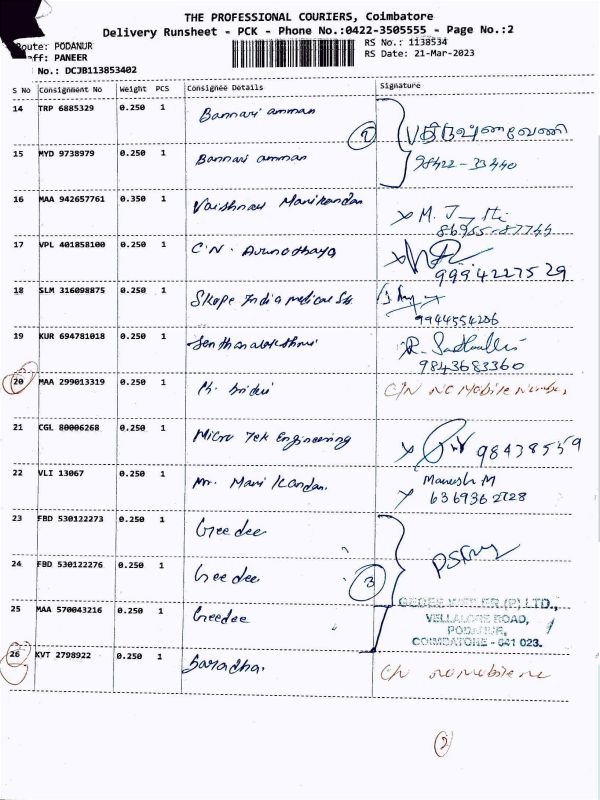 THE PROFESSIONAL COURIERS, Coimbatore
Delivery Runsheet - PCK - Phone No.:0422-3505555 - Page No.:2
Route: PODANUR
RS No.: 1138534
aff: PANEER
RS Date: 21-Mar-2023
No.: DCJB113853402
S No Consignment No Weight PCS Consignee Details Signature
14 TRP 6885329 0.250 1 Bannari amman
2
15 MYD 9738979 0.250 1 Bannari amman 98422-33440
16 MAA 942657761 0.350 1 Vaishnavi Manikandan
17 VPL 401858100 0.250 1 C.N. Arunothaya
9994227529
18 SLM 316098875 0.250 1 Skope India medical
9944554206
19 KUR 694781018 0.250 1
9843683360
20 MAA 299013319 0.250 1 C/N No Mobile Number
21 CGL 80006268 0.250 1 Micro Tek Engineering
98438559
22 VLI 13067 0.250 1 Mr. Mani Kandan. Manesh M
6369362728
23 FBD 530122273 0.250 1 Gee dee
24 FBD 530122276 0.250 1 Gee dee
3
25 MAA 570043216 0.250 1 Geedee
(P) LTD.,
VELLALORE ROAD,
PODANUR,
COIMBATORE - 641 023.
26 KVT 2798922 0.250 1 Saradha. C/N no mobile no
2